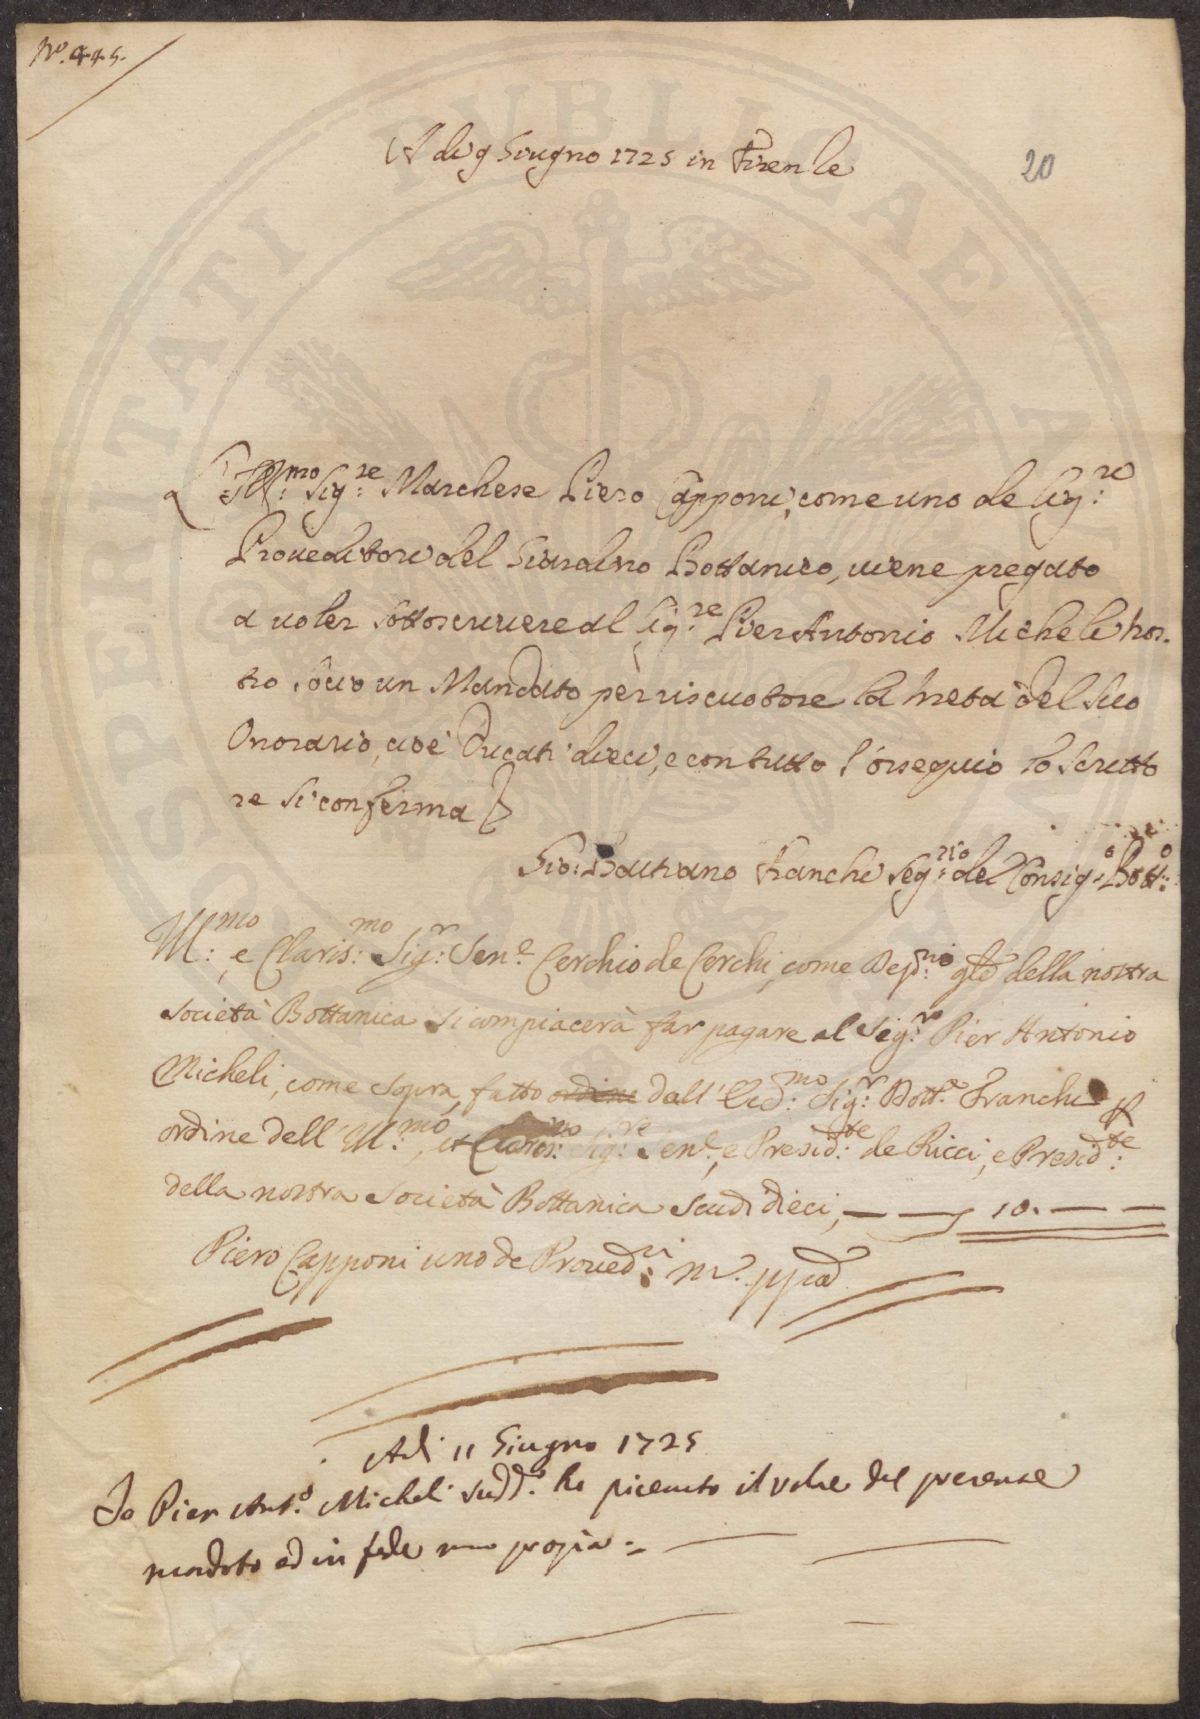 N.º 445.
A dì 9 Giugno 1725 in Firenze
20
Ill:mo Sig:re Marchese Piero Capponi, come uno de Sig:ri
Proveditori del Giardino Bottanico, viene pregato
a voler sottoscrivere al Sig:re Pier Antonio Micheli nos-
tro socio un Mandato per riscuotere la metà del suo
Onorario, cioè Ducati dieci, e con tutto l'ossequio lo scritto
re si conferma
Gio: Bastiano Franchi Seg:rio del Consig:o Bott:o
Ill:mo, e Claris:mo Sig:r Sen:e Cerchio de Cerchi, come Dep:rio gle della nostra
Società Bottanica si compiacerà far pagare al Sig:re Pier Antonio
Micheli, come sopra, fatto ordine dall' Ecc:mo Sig:r Dott:e Franchi p
ordine dell' Ill:mo, et Claris:mo Sig:re Sen:e, e Presid:te de Ricci, e Presid:te
della nostra Società Bottanica scudi dieci, — — 10. — —
Piero Capponi uno de Proved:ri m. ppa
Adì 11 Giugno 1725
Io Pier Ant.º Micheli Sudd.º ho riceuto il valse del presente
mandato ed in fede mo propia =